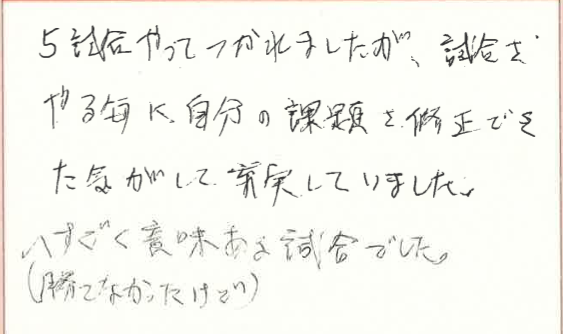 5試合やってつかれましたが、試合を
やる毎に自分の課題を修正でき
た気がして充実していました。
すごく意味ある試合でした。
(勝てなかったけど)